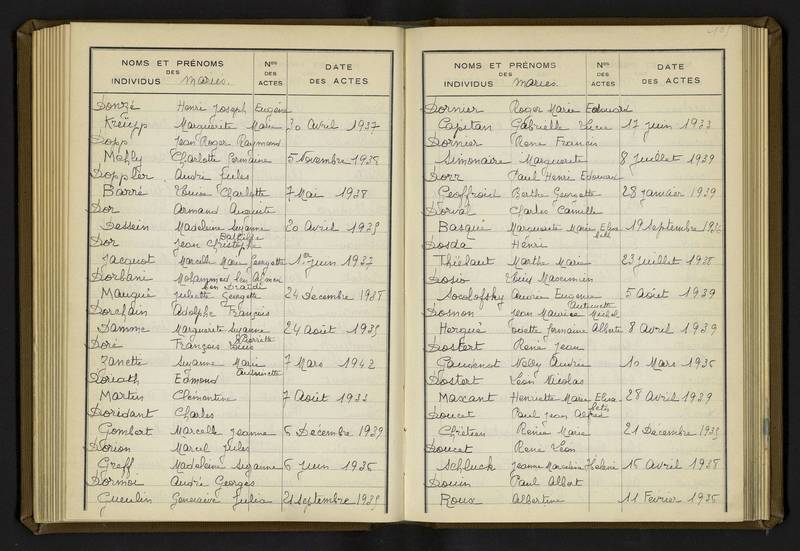 NOMS ET PRÉNOMS
DES
INDIVIDUS Mariés.
Nos
DES
ACTES
DATE
DES ACTES
Donzé Henri Joseph Eugène
Kreüpp Marguerite Marie 30 Avril 1937
Dopp Jean Roger Raymond
Mehly Charlotte Germaine 5 Novembre 1938
Doppler André Jules
Barré Louise Charlotte 7 Mai 1938
Dor Armand Auguste
Dessein Madeleine Suzanne 20 Avril 1939
Dor Jean Christophe
Jacquot Marcelle Marie Georgette 1er Juin 1937
Dorbani Mohammed ben Ahmed
ben
Maugué Juliette Georgette 24 Décembre 1938
Dorchain Adolphe François
Damme Marguerite Suzanne 24 Août 1939
Pierrette
Doré François Louis
Zanetti Suzanne Marie 7 Mars 1942
Antoinette
Doriath Edmond
Martin Clémentine 7 Août 1933
Doridant Charles
Gombert Marcelle Jeanne 6 Décembre 1939
Dorion Marcel Jules
Greff Madeleine Suzanne 6 Juin 1936
Dormoi André Georges
Cuculin Geneviève Julia 21 Septembre 1939
NOMS ET PRÉNOMS
DES
INDIVIDUS Mariés.
Nos
DES
ACTES
DATE
DES ACTES
Dornier Roger Marie Edouard
Capitan Gabrielle Luce 17 Juin 1933
Dornier René Francis
Simonaire Marguerite 8 Juillet 1939
Dorr Paul Henri Edouard
Geoffroid Berthe Georgette 28 Janvier 1939
Dorval Charles Camille
Basqué Marguerite Marie Elisa 19 Septembre
beth
Dosda Henri
Thiébaut Marthe Marie 23 Juillet 1938
Dosio Louis Maximin
Socolofsky Andrée Eugénie 5 Août 1939
Antoinette
Dosnon Jean Maurice Michel
Herqué Odette Germaine Alberte 8 Avril 1939
Dostert René Jean
Gaudenot Nelly Andrée 10 Mars 1936
Dostert Léon Nicolas
Maxant Henriette Marie Elisa 28 Avril 1939
beth
Doucet Paul Jean Alfred
Chrétien Renée Marie 21 Décembre 1939
Doucet René Léon
Schluck Jeanne Madeleine Hélène 16 Avril 1938
Douin Paul Albert
Roux Albertine 11 Février 1936